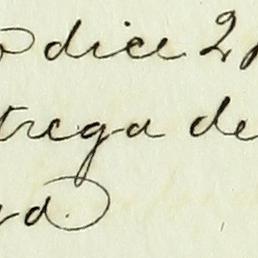 o dice 2
trega de